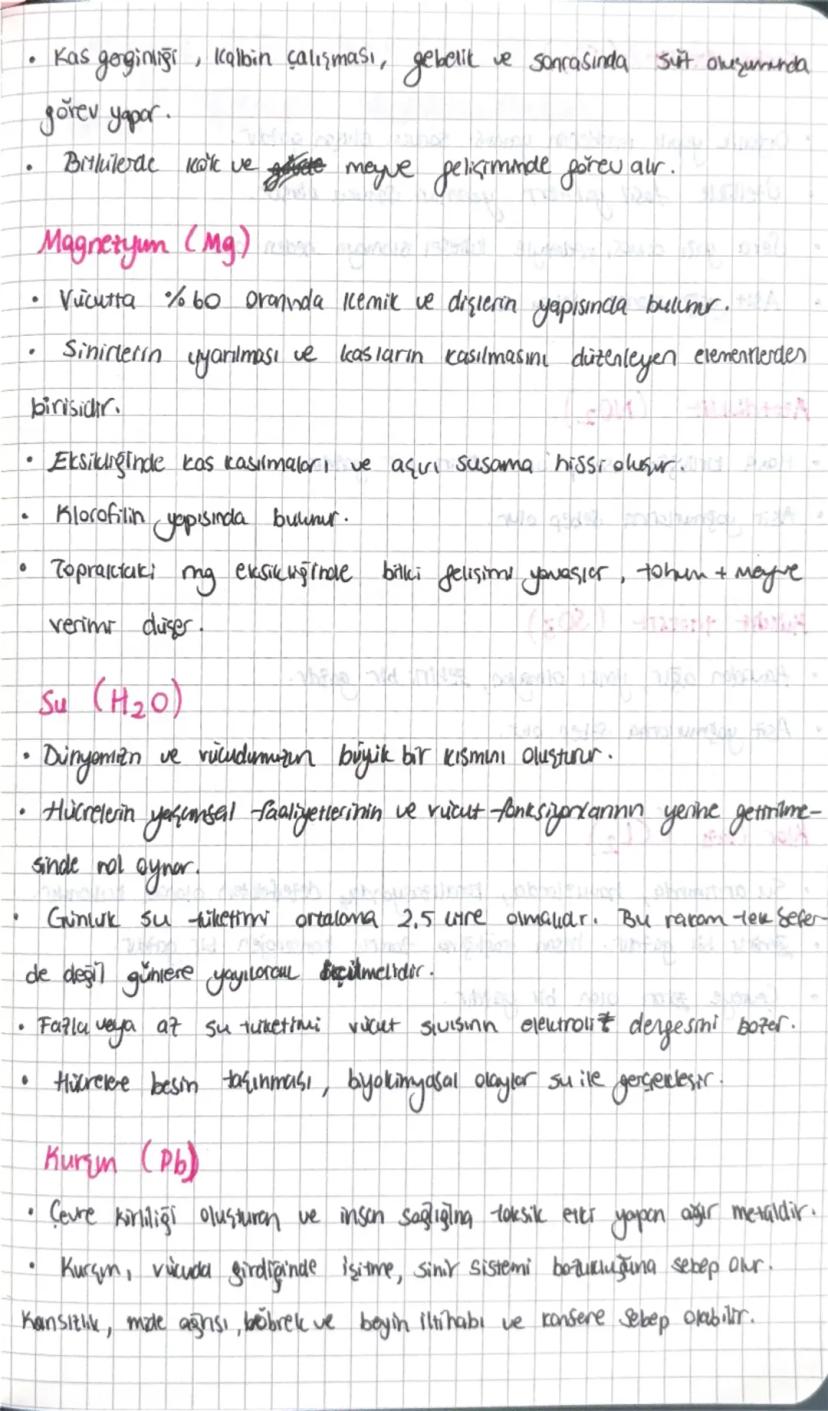 • Kas gerginliği, kalbin çalışması, gebelik ve sonrasında süt oluşumunda
görev yapar.
• Bitkilerde kök ve meyve gelişiminde görev alır.
Magnezyum (Mg)
• Vücutta %60 oranında kemik ve dişlerin yapısında bulunur.
• Sinirlerin uyarılması ve kasların kasılmasını düzenleyen elementlerden
birisidir.
• Eksikliğinde kas kasılmaları ve aşırı susama hissi oluşur.
• Klorofilin yapısında bulunur.
• Topraktaki mg eksikliğinde bitki gelişimi yavaşlar, tohum + meyve
verimi düşer.
Su (H₂O)
• Dünyamızın ve vücudumuzun büyük bir kısmını oluşturur.
• Hücrelerin yaşamsal faaliyetlerinin ve vücut fonksiyonlarının yerine getirilme-
sinde rol oynar.
• Günlük su tüketimi ortalama 2,5 litre olmalıdır. Bu rakam tek sefer-
de değil günlere yayılarak içilmelidir.
• Fazla veya az su tüketimi vücut sıvısının elektrolit dengesini bozar.
• Hücrelere besin taşınması, biyokimyasal olaylar su ile gerçekleşir.
Kurşun (Pb)
• Çevre kirliliği oluşturan ve insan sağlığına toksik etki yapan ağır metaldir.
• Kurşun, vücuda girdiğinde işitme, sinir sistemi bozukluğuna sebep olur.
Kansızlık, mide ağrısı, böbrek ve beyin iltihabı ve kansere sebep olabilir.